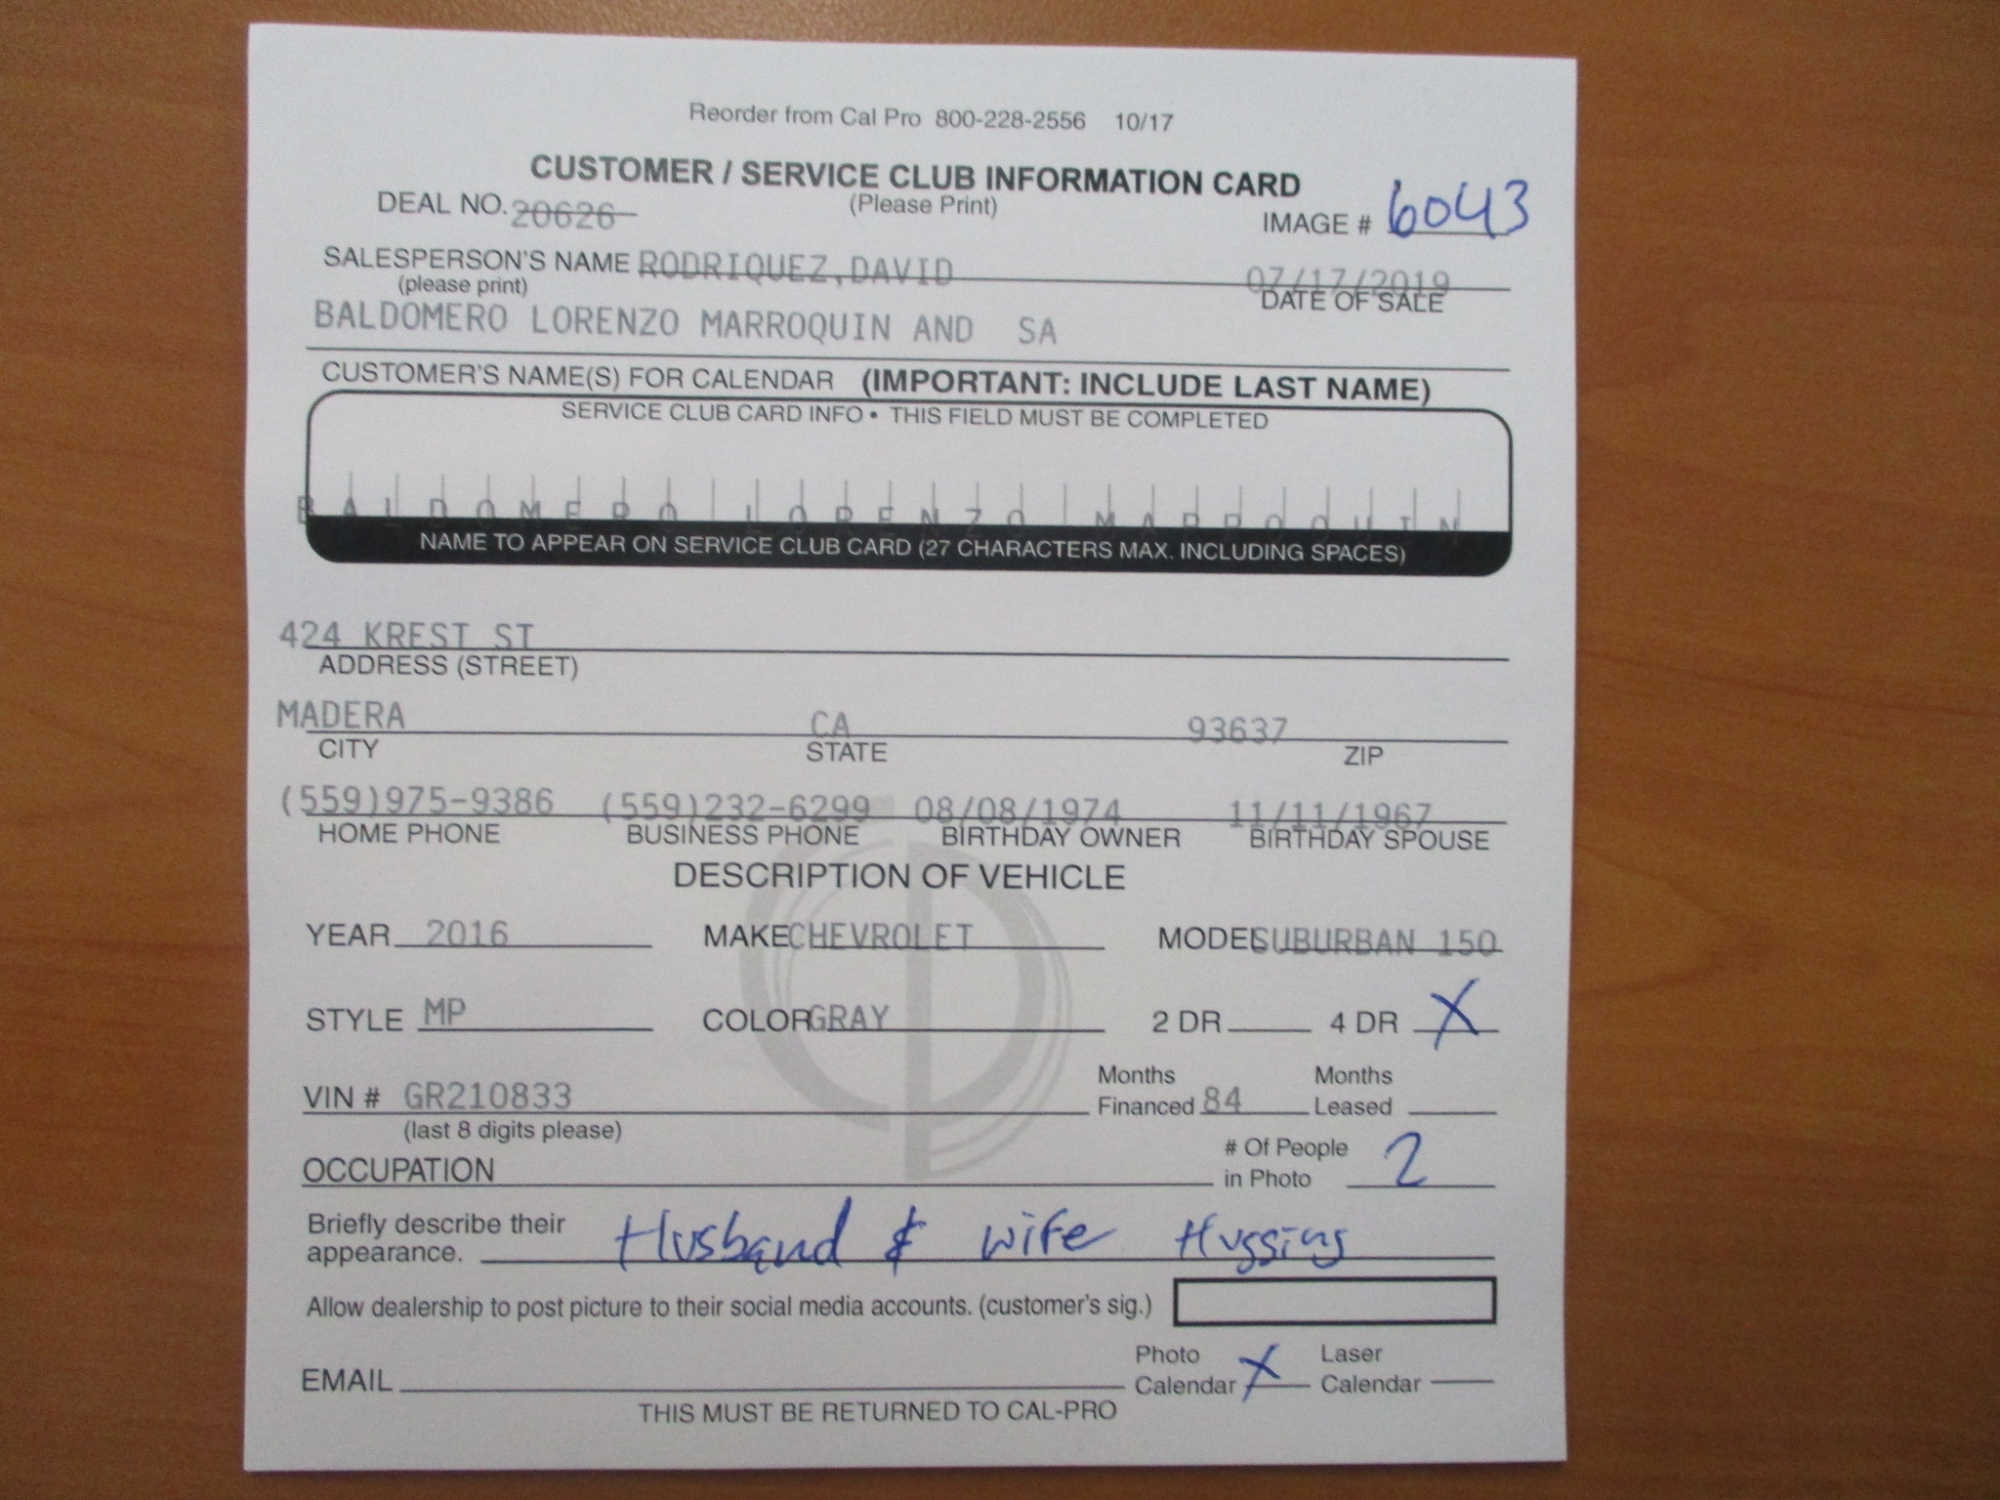 Reorder from Cal Pro 800-228-2556 10/17
CUSTOMER / SERVICE CLUB INFORMATION CARD
DEAL NO. 20626 (Please Print) IMAGE # 6043
SALESPERSON'S NAME RODRIQUEZ,DAVID 07/17/2019
(please print) DATE OF SALE
BALDOMERO LORENZO MARROQUIN AND SA
CUSTOMER'S NAME(S) FOR CALENDAR (IMPORTANT: INCLUDE LAST NAME)
SERVICE CLUB CARD INFO • THIS FIELD MUST BE COMPLETED
BALDOMERO LORENZO MARROQUIN
NAME TO APPEAR ON SERVICE CLUB CARD (27 CHARACTERS MAX. INCLUDING SPACES)
424 KREST ST
ADDRESS (STREET)
MADERA CA 93637
CITY STATE ZIP
(559)975-9386 (559)232-6299 08/08/1974 11/11/1967
HOME PHONE BUSINESS PHONE BIRTHDAY OWNER BIRTHDAY SPOUSE
DESCRIPTION OF VEHICLE
YEAR 2016 MAKE CHEVROLET MODEL SUBURBAN 150
STYLE MP COLOR GRAY 2 DR 4 DR X
Months Months
VIN # GR210833 Financed 84 Leased
(last 8 digits please)
# Of People
OCCUPATION in Photo 2
Briefly describe their
appearance. Husband & wife Hugging
Allow dealership to post picture to their social media accounts. (customer's sig.)
Photo Laser
EMAIL Calendar X Calendar
THIS MUST BE RETURNED TO CAL-PRO